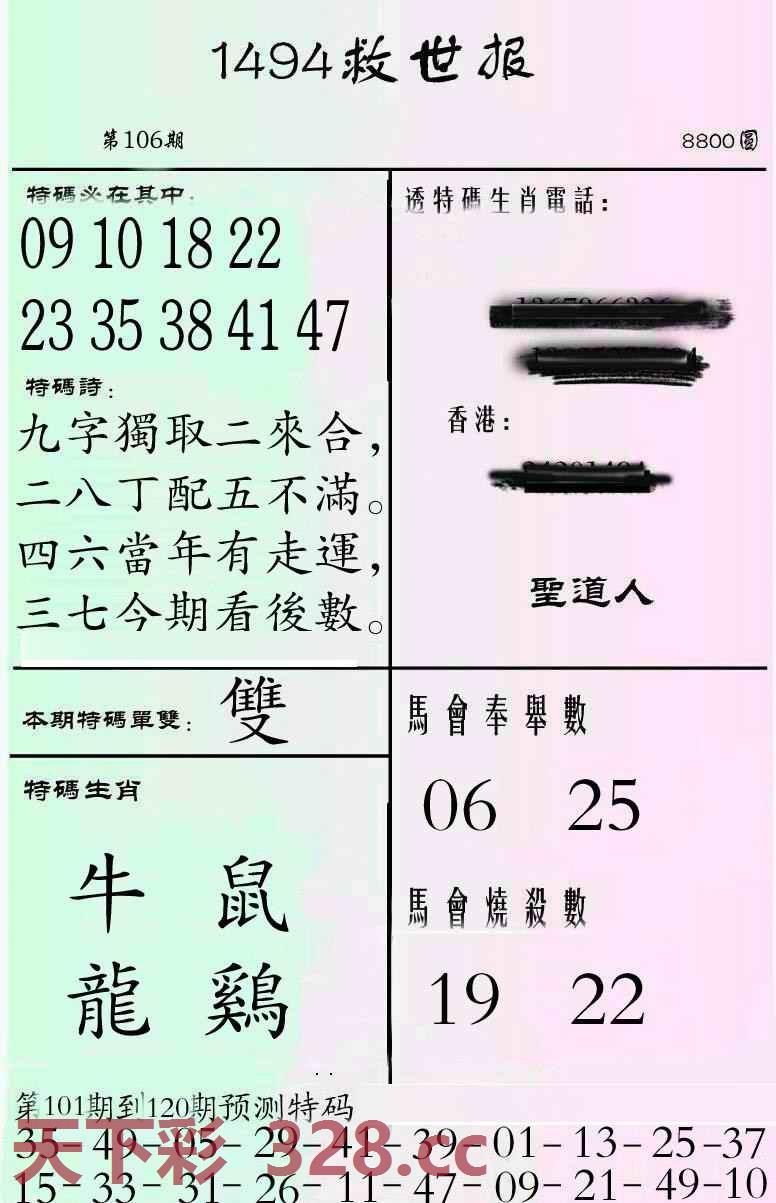 1494救世报
第106期
8800圓
特碼必在其中:
09 10 18 22
23 35 38 41 47
特碼詩:
九字獨取二來合,
二八丁配五不滿。
四六當年有走運,
三七今期看後數。
透特碼生肖電話:
香港:
聖道人
本期特碼單雙:
雙
特碼生肖
牛 鼠
龍 鷄
馬會奉舉數
06 25
馬會燒殺數
19 22
第101期到120期预测特码
35-49-05-29-41-39-01-13-25-37
15-33-31-26-11-47-09-21-49-10
天下彩 328.cc